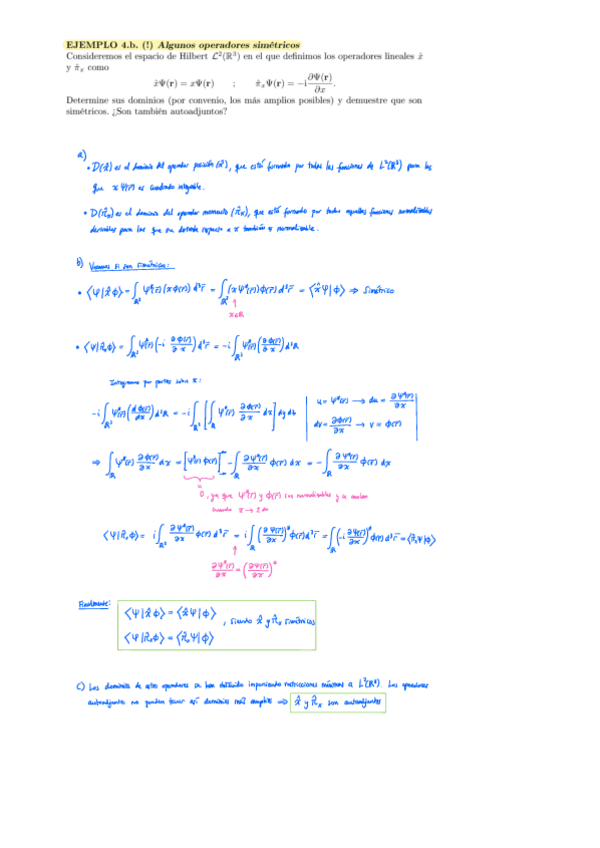 EJEMPLO 4.b. (!) Algunos operadores simétricos
Consideremos el espacio de Hilbert ℒ²(ℝ³) en el que definimos los operadores lineales x̂
y π̂ₓ como
x̂Ψ(r) = xΨ(r) ; π̂ₓΨ(r) = −i ∂Ψ(r)/∂x.
Determine sus dominios (por convenio, los más amplios posibles) y demuestre que son
simétricos. ¿Son también autoadjuntos?
a)
• D(x̂) es el dominio del operador posición (x̂), que está formado por todas las funciones de L²(ℝ³) para las
que x Ψ(r̄) es cuadrado integrable.
• D(π̂ₓ) es el dominio del operador momento (π̂ₓ), que está formado por todas aquellas funciones normalizables
derivables para las que su derivada respecto a x también es normalizable.
b) Veamos si son simétricos:
• ⟨Ψ|x̂Φ⟩ = ∫_ℝ³ Ψ*(r̄)(xΦ(r̄)) d³r̄ = ∫_ℝ³ (xΨ*(r̄))Φ(r̄) d³r̄ = ⟨x̂Ψ|Φ⟩ ⇒ Simétrico
↑
x∈ℝ
• ⟨Ψ|π̂ₓΦ⟩ = ∫_ℝ³ Ψ*(r̄)(-i ∂Φ(r̄)/∂x) d³r̄ = -i ∫_ℝ³ Ψ*(r̄)(∂Φ(r̄)/∂x) d³r
Integramos por partes sobre x:
-i ∫_ℝ³ Ψ*(r̄)(∂Φ(r̄)/∂x) d³r = -i ∫_ℝ² [∫_ℝ Ψ*(r̄) ∂Φ(r̄)/∂x dx] dy dz
u = Ψ*(r̄) → du = ∂Ψ*(r̄)/∂x
dv = ∂Φ(r̄)/∂x → v = Φ(r̄)
⇒ ∫_ℝ Ψ*(r̄) ∂Φ(r̄)/∂x dx = [Ψ*(r̄) Φ(r̄)] - ∫_ℝ ∂Ψ*(r̄)/∂x Φ(r̄) dx = - ∫_ℝ ∂Ψ*(r̄)/∂x Φ(r̄) dx
0, ya que Ψ*(r̄) y Φ(r̄) son normalizables y se anulan
cuando x → ±∞
⟨Ψ|π̂ₓΦ⟩ = i ∫_ℝ³ ∂Ψ*(r̄)/∂x Φ(r̄) d³r̄ = i ∫_ℝ (∂Ψ(r̄)/∂x)* Φ(r̄) d³r̄ = ∫_ℝ (-i ∂Ψ(r̄)/∂x)* Φ(r̄) d³r̄ = ⟨π̂ₓΨ|Φ⟩
↑
∂Ψ*(r̄)/∂x = (∂Ψ(r̄)/∂x)*
Finalmente:
⟨Ψ|x̂Φ⟩ = ⟨x̂Ψ|Φ⟩
, siendo x̂ y π̂ₓ simétricos
⟨Ψ|π̂ₓΦ⟩ = ⟨π̂ₓΨ|Φ⟩
c) Los dominios de estos operadores se han obtenido imponiendo restricciones mínimas a L²(ℝ³). Los operadores
autoadjuntos no pueden tener así dominios más amplios ⇒ x̂ y π̂ₓ son autoadjuntos